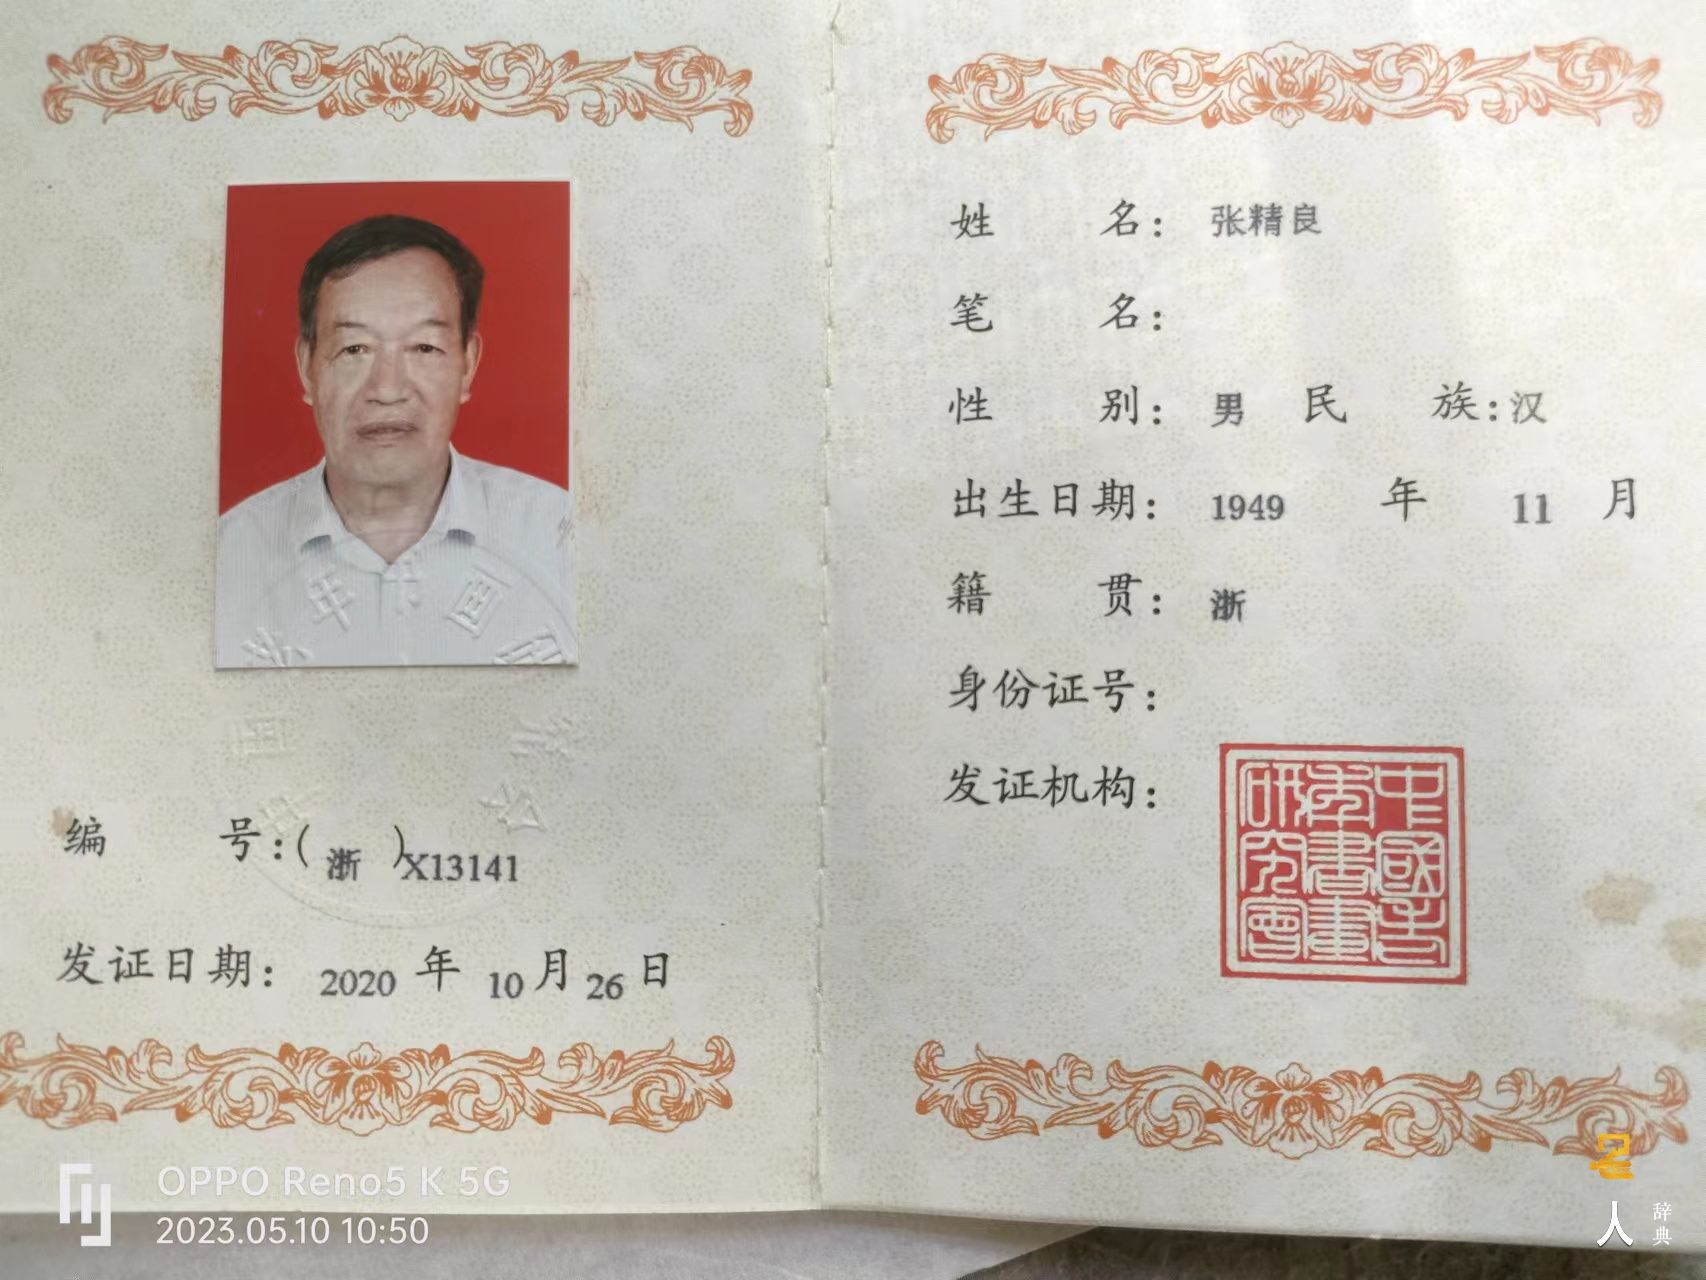 编 号:( 浙 )X13141
发证日期: 2020 年 10 月 26 日
姓 名: 张精良
笔 名:
性 别: 男 民 族: 汉
出生日期: 1949 年 11 月
籍 贯: 浙
身份证号:
发证机构:
中國老
年書畫
研究會
OPPO Reno5 K 5G
2023.05.10 10:50
名
人
辞典